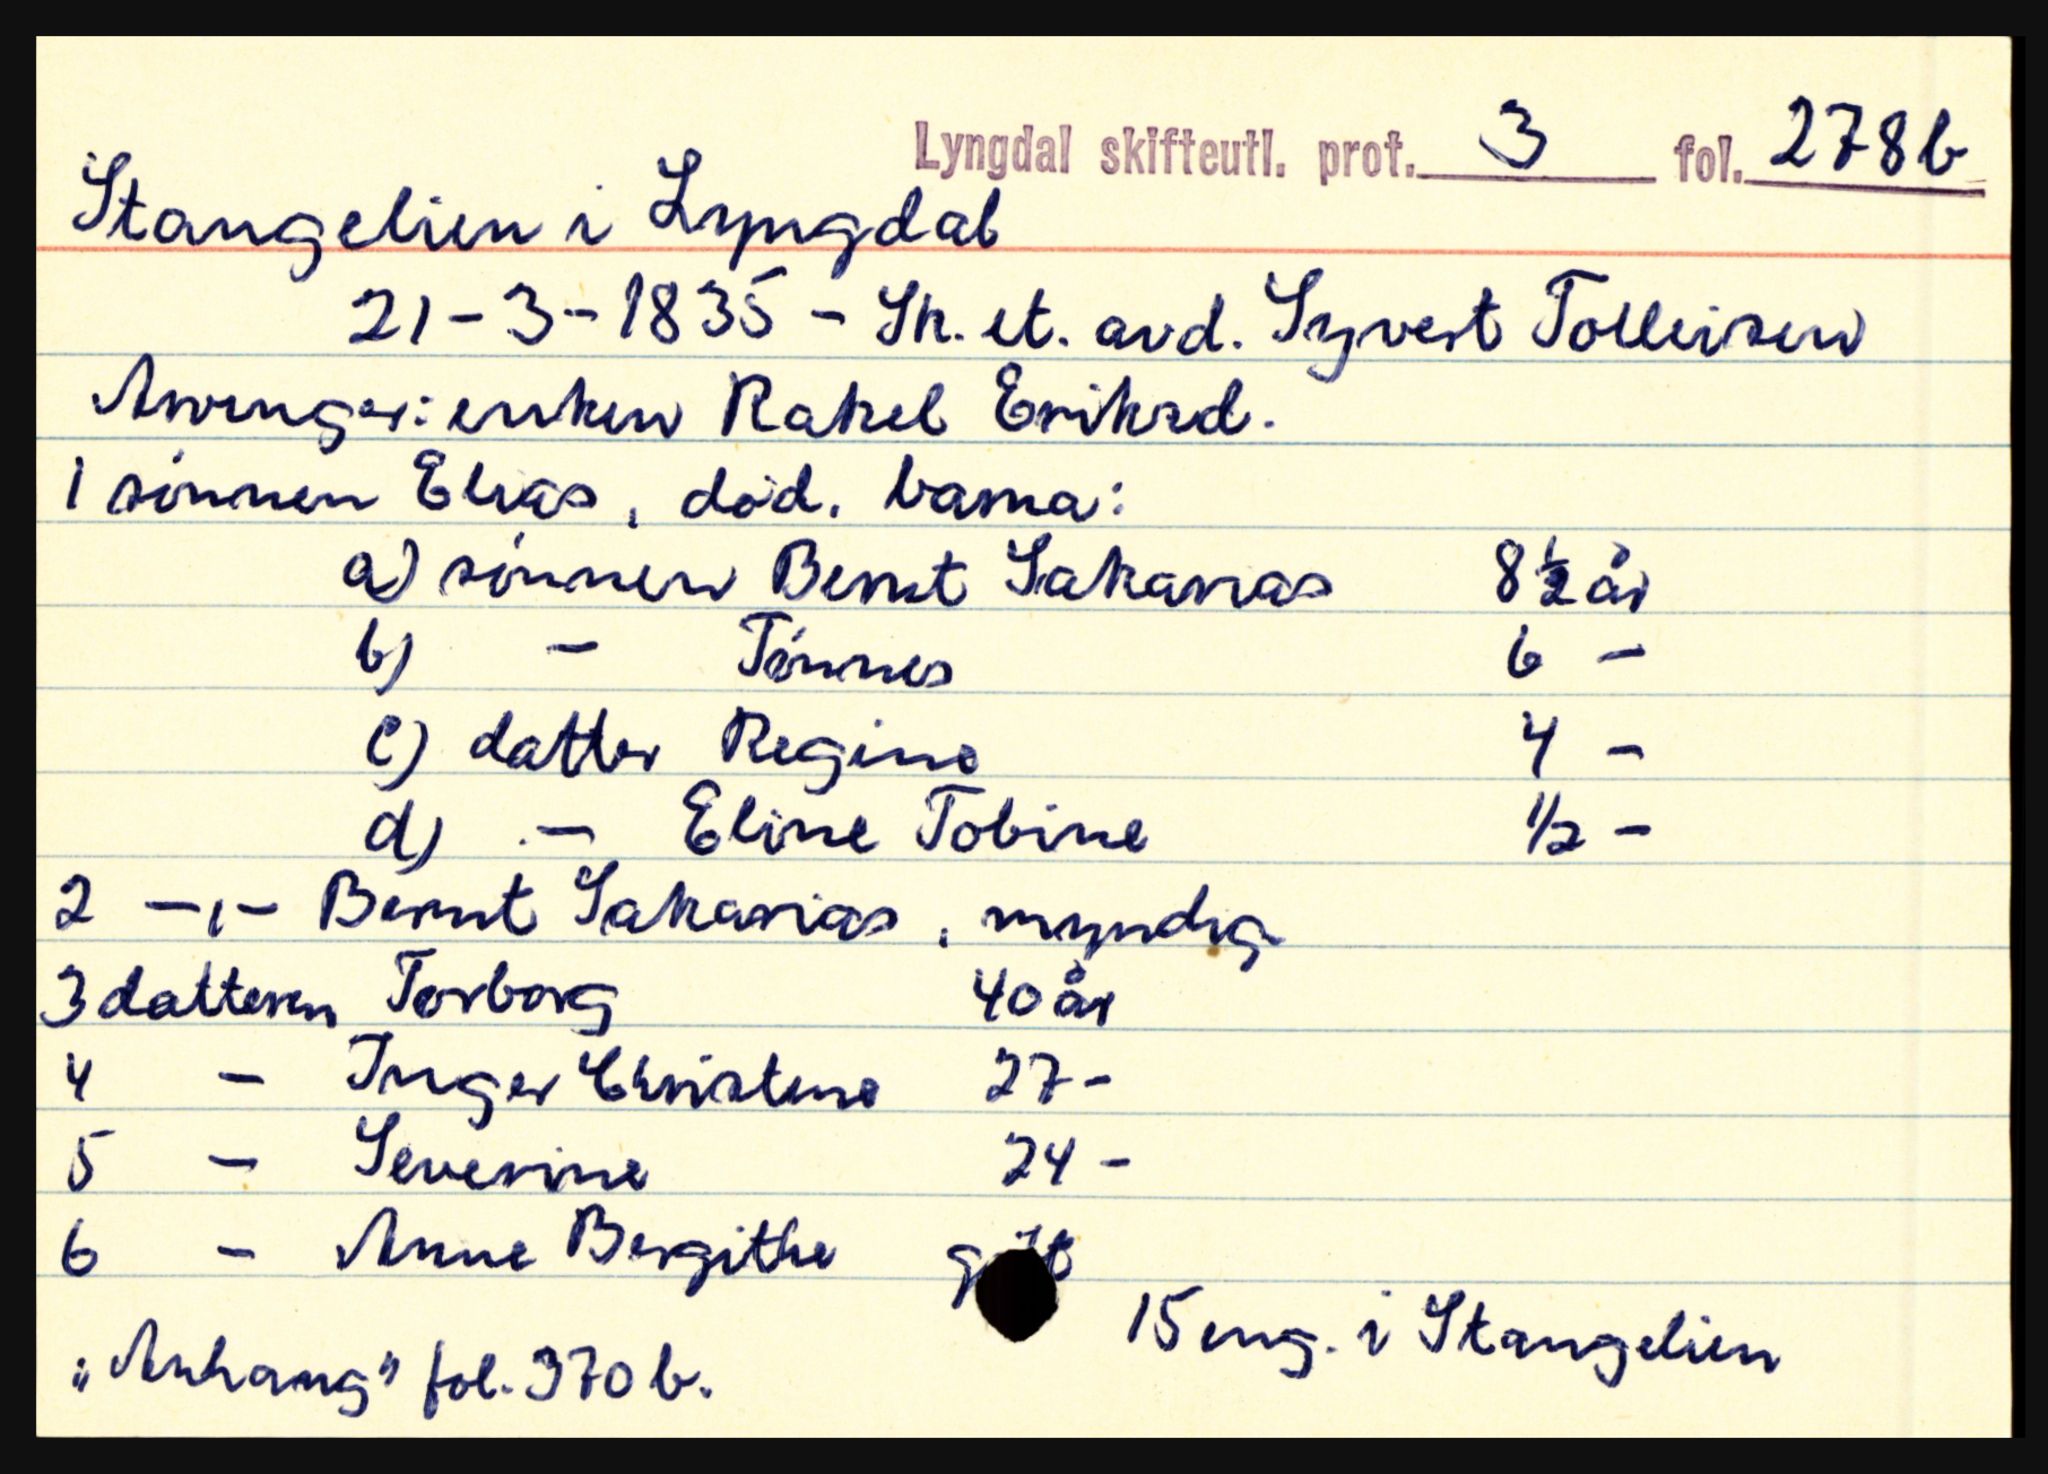 Lyngdal skifteutl. prot. 3 fol. 278b
Stangelien i Lyngdal
21-3-1835 - Sk. et. avd. Syvert Tolleisen
Arvinger: enken Rakel Eriksd.
1 sønnen Elias, død. barna:
a) sønnen Bernt Sakarias 8 1/2 år
b) - Tønnes 6 -
c) datter Regine 4 -
d) - Eline Tobine 1/2 -
2 -,- Bernt Sakarias, myndig
3 datteren Torborg 40 år
4 - Inger Christine 27 -
5 - Severine 24 -
6 - Anne Bergithe
15 eng. i Stangelien
"Anhang" fol. 370b.